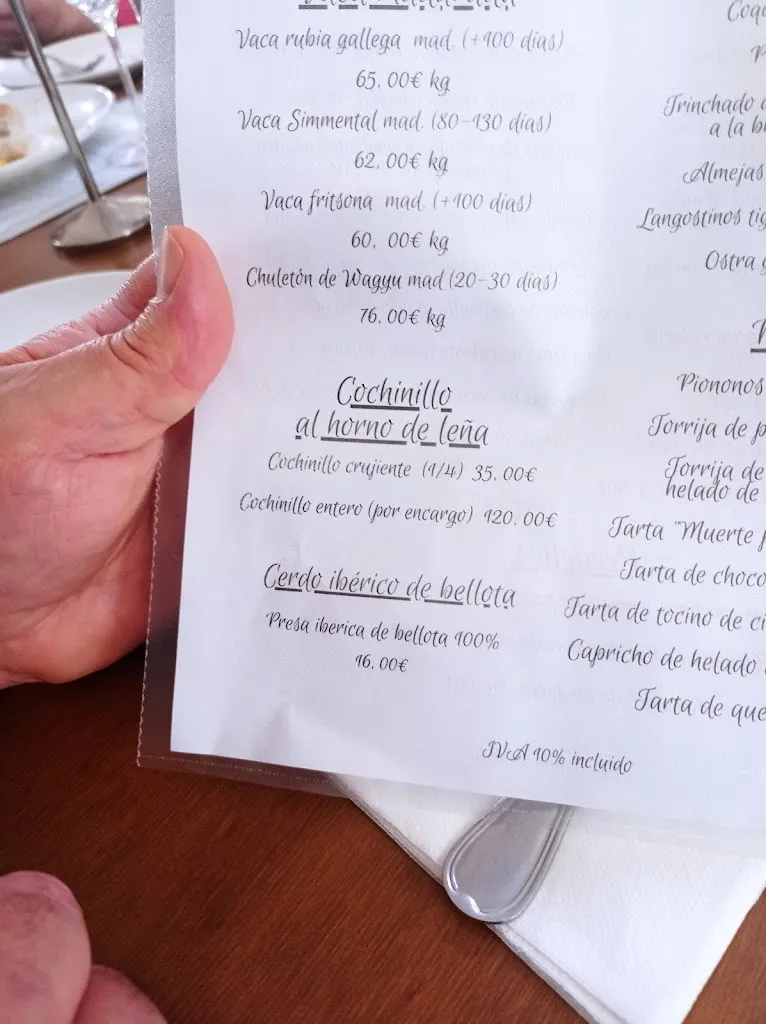 Vaca rubia gallega mad. (+100 dias)
65,00€ kg
Vaca Simmental mad. (80-130 dias)
62,00€ kg
Vaca fritsona mad. (+100 dias)
60, 00€ kg
Chuletón de Wagyu mad (20-30 dias)
76,00€ kg
Cochinillo
al horno de leña
Cochinillo crujiente (1/4) 35,00€
Cochinillo entero (por encargo) 120,00€
Cerdo ibérico de bellota
Presa iberica de bellota 100%
16,00€
Trinchado
a la
Almejas
Langostinos
Ostra
Piononos
Torrija de
Torrija de
helado de
Tarta "Muerte
Tarta de
Tarta de tocino de
Capricho de helado
Tarta de
IVA 10% incluido